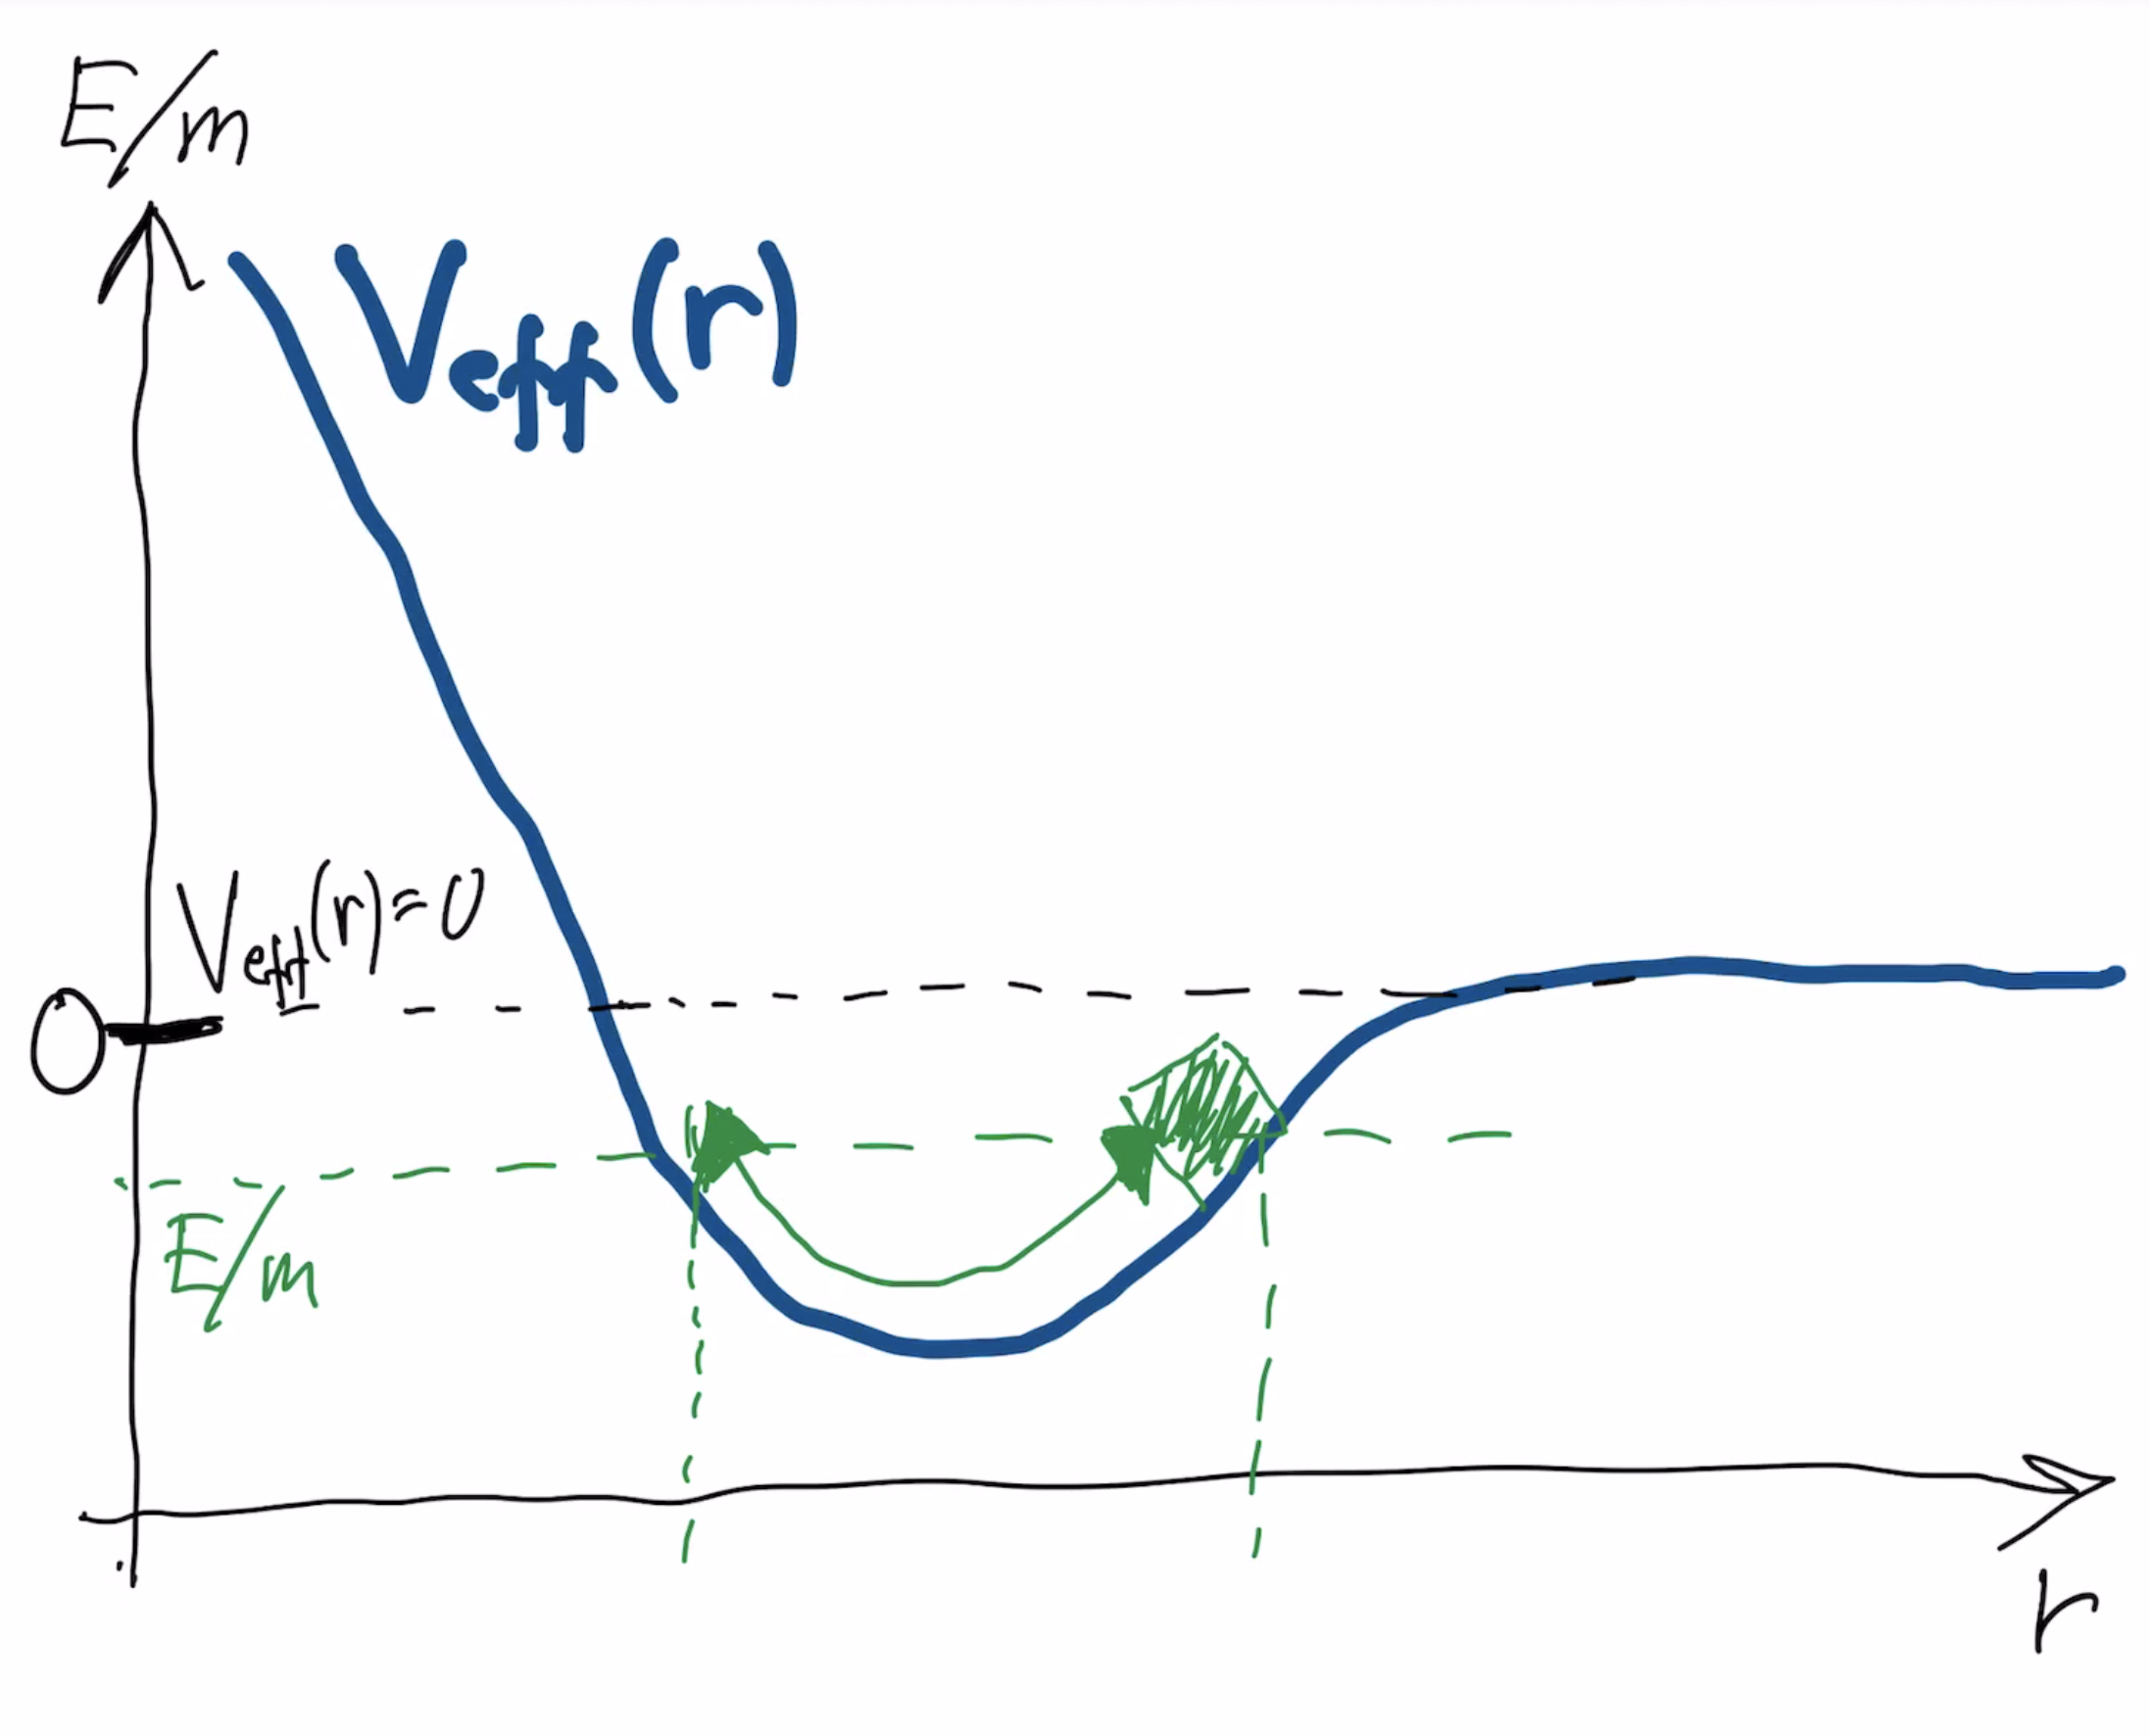 E/m
V_eff(r)
V_eff(r)=0
0
E/m
r